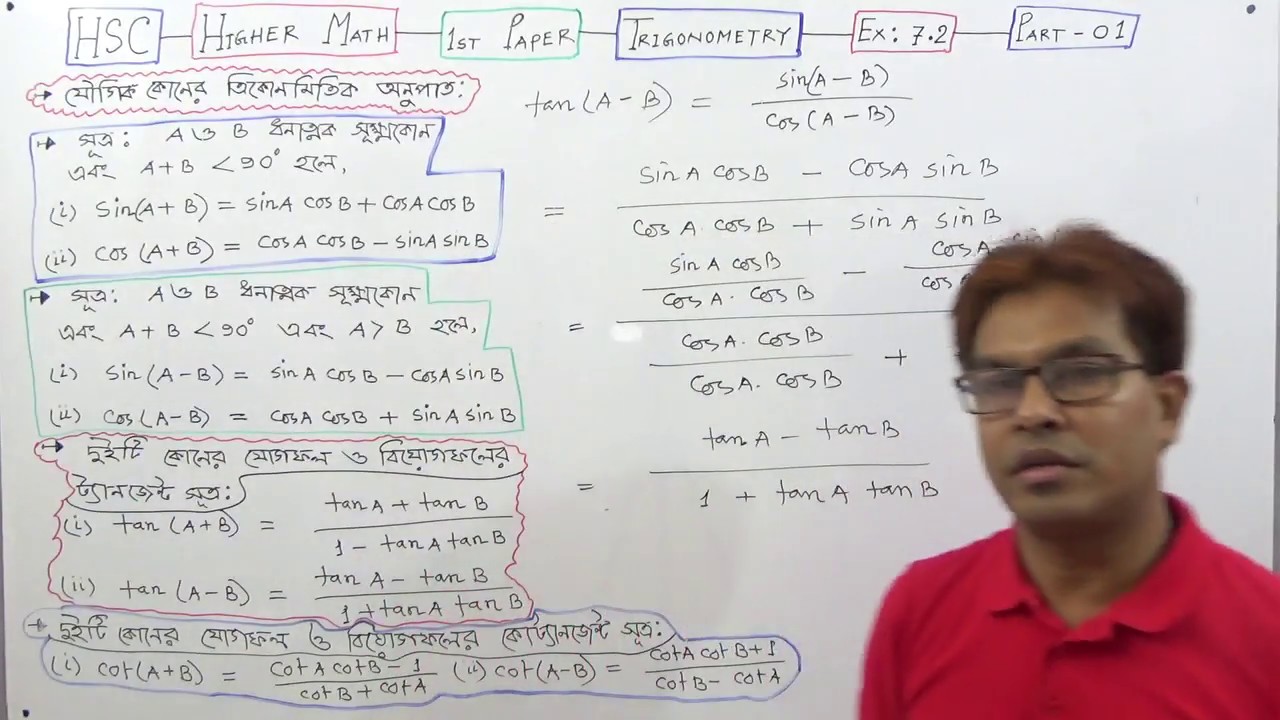 HSC HIGHER MATH 1ST PAPER TRIGONOMETRY EX: 7.2 PART - 01
→ যৌগিক কোনের ত্রিকোনমিতিক অনুপাত:
→ সূত্র: A ও B ধনাত্মক সূক্ষ্মকোন
এবং A+B <90° হলে,
(i) Sin(A+B) = sinA cosB + cosA cosB
(ii) cos (A+B) = cosA cosB - sinA sinB
→ সূত্র: A ও B ধনাত্মক সূক্ষ্মকোন
এবং A+B <90° এবং A > B হলে,
(i) Sin (A-B) = sinA cosB - cosA sinB
(ii) cos (A-B) = cosA cosB + sinA sinB
→ দুইটি কোনের যোগফল ও বিয়োগফলের
ট্যানজেন্ট সূত্র:
(i) tan (A+B) = tanA + tanB
1 - tanA tanB
(ii) tan (A-B) = tanA - tanB
1 + tanA tanB
→ দুইটি কোনের যোগফল ও বিয়োগফলের কোট্যানজেন্ট সূত্র:
(i) cot (A+B) = cotA cotB - 1
cotB + cotA
(ii) cot (A-B) = cotA cotB + 1
cotB - cotA
tan (A - B) = sin(A - B)
cos (A - B)
= sinA cosB - cosA sinB
cosA. cosB + sinA sinB
= sinA cosB - cosA
cosA. cosB
cosA. cosB +
cosA. cosB
= tanA - tanB
1 + tanA tanB